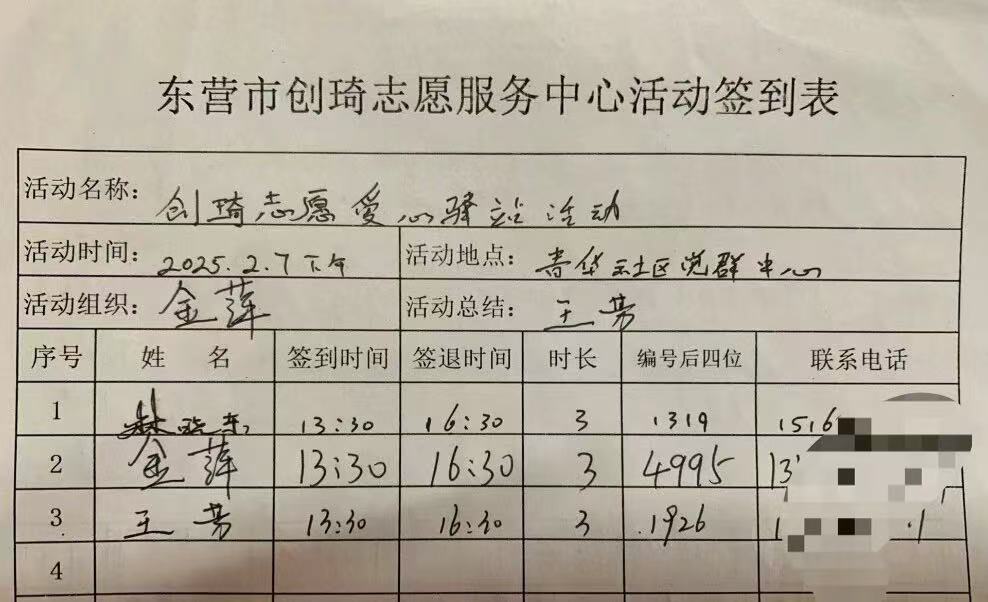 东营市创琦志愿服务中心活动签到表
活动名称: 创琦志愿爱心驿站活动
活动时间: 2025.2.7下午 活动地点: 春华社区党群中心
活动组织: 金萍 活动总结: 王芳
序号 姓名 签到时间 签退时间 时长 编号后四位 联系电话
1 晓东 13:30 16:30 3 1319 1516
2 金萍 13:30 16:30 3 4995 13
3 王芳 13:30 16:30 3 1926 1
4